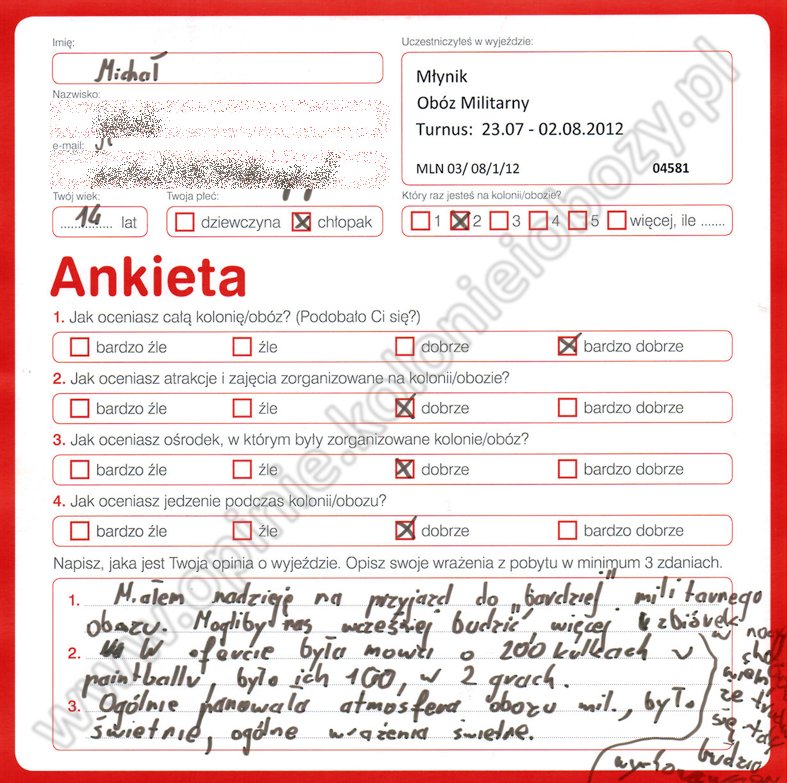 Imię:
Michał
Nazwisko:
e-mail:
Twój wiek:
14 lat
Twoja płeć:
dziewczyna chłopak
Uczestniczyłeś w wyjeździe:
Młynik
Obóz Militarny
Turnus: 23.07 - 02.08.2012
MLN 03/ 08/1/12 04581
Który raz jesteś na kolonii/obozie?
1 2 3 4 5 więcej, ile .......
Ankieta
1. Jak oceniasz całą kolonię/obóz? (Podobało Ci się?)
bardzo źle źle dobrze bardzo dobrze
2. Jak oceniasz atrakcje i zajęcia zorganizowane na kolonii/obozie?
bardzo źle źle dobrze bardzo dobrze
3. Jak oceniasz ośrodek, w którym były zorganizowane kolonie/obóz?
bardzo źle źle dobrze bardzo dobrze
4. Jak oceniasz jedzenie podczas kolonii/obozu?
bardzo źle źle dobrze bardzo dobrze
Napisz, jaka jest Twoja opinia o wyjeździe. Opisz swoje wrażenia z pobytu w minimum 3 zdaniach.
1. Miałem nadzieję na przyjazd do "bardziej" militarnego
obozu. Mogliby nas wcześniej budzić, więcej zbiórek
2. W ofercie była mowa o 200 kulkach v
paintballu, było ich 100, w 2 grach.
3. Ogólnie panowała atmosfera obozu mil., było
świetnie, ogólne wrażenia świetne.
w nocy
wiem
że
się tak
budzić
www.opinie.kolonieiobozy.pl